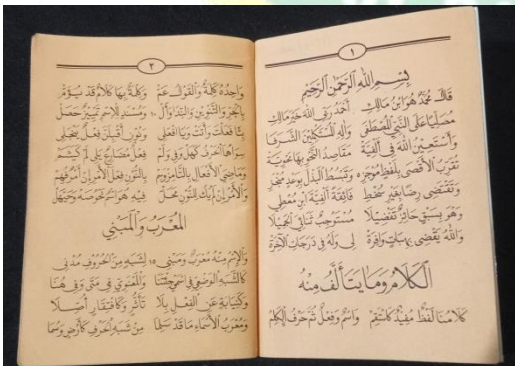 ١
بسم الله الرحمن الرحيم
قال محمد هو ابن مالك أحمد ربي الله خير مالك
مصليا على النبي المصطفى وآله المستكملين الشرفا
وأستعين الله في ألفية مقاصد النحو بها محوية
تقرب الأقصى بلفظ موجز وتبسط البذل بوعد منجز
وتقتضي رضا بغير سخط فائقة ألفية ابن معطي
وهو بسبق حائز تفضيلا مستوجب ثنائي الجميلا
والله يقضي بهبات وافرة لي وله في درجات الآخرة
الكلام وما يتألف منه
كلامنا لفظ مفيد كاستقم واسم وفعل ثم حرف الكلم
٢
واحده كلمة والقول عم وكلمة بها كلام قد يؤم
بالجر والتنوين والندا وأل ومسند للاسم تمييز حصل
بتا فعلت وأتت ويا افعلي ونون أقبلن فعل ينجلي
سواهما الحرف كهل وفي ولم فعل مضارع يلي لم كيشم
وماضي الأفعال بالتا مز وسم بالنون فعل الأمر إن أمر فهم
والأمر إن لم يك للنون محل فيه هو اسم نحو صه وحيهل
المعرب والمبني
والاسم منه معرب ومبني لشبه من الحروف مدني
كالشبه الوضعي في اسمي جئتنا والمعنوي في متى وفي هنا
وكنيابة عن الفعل بلا تأثر وكافتقار أصلا
ومعرب الأسماء ما قد سلما من شبه الحرف كأرض وسما